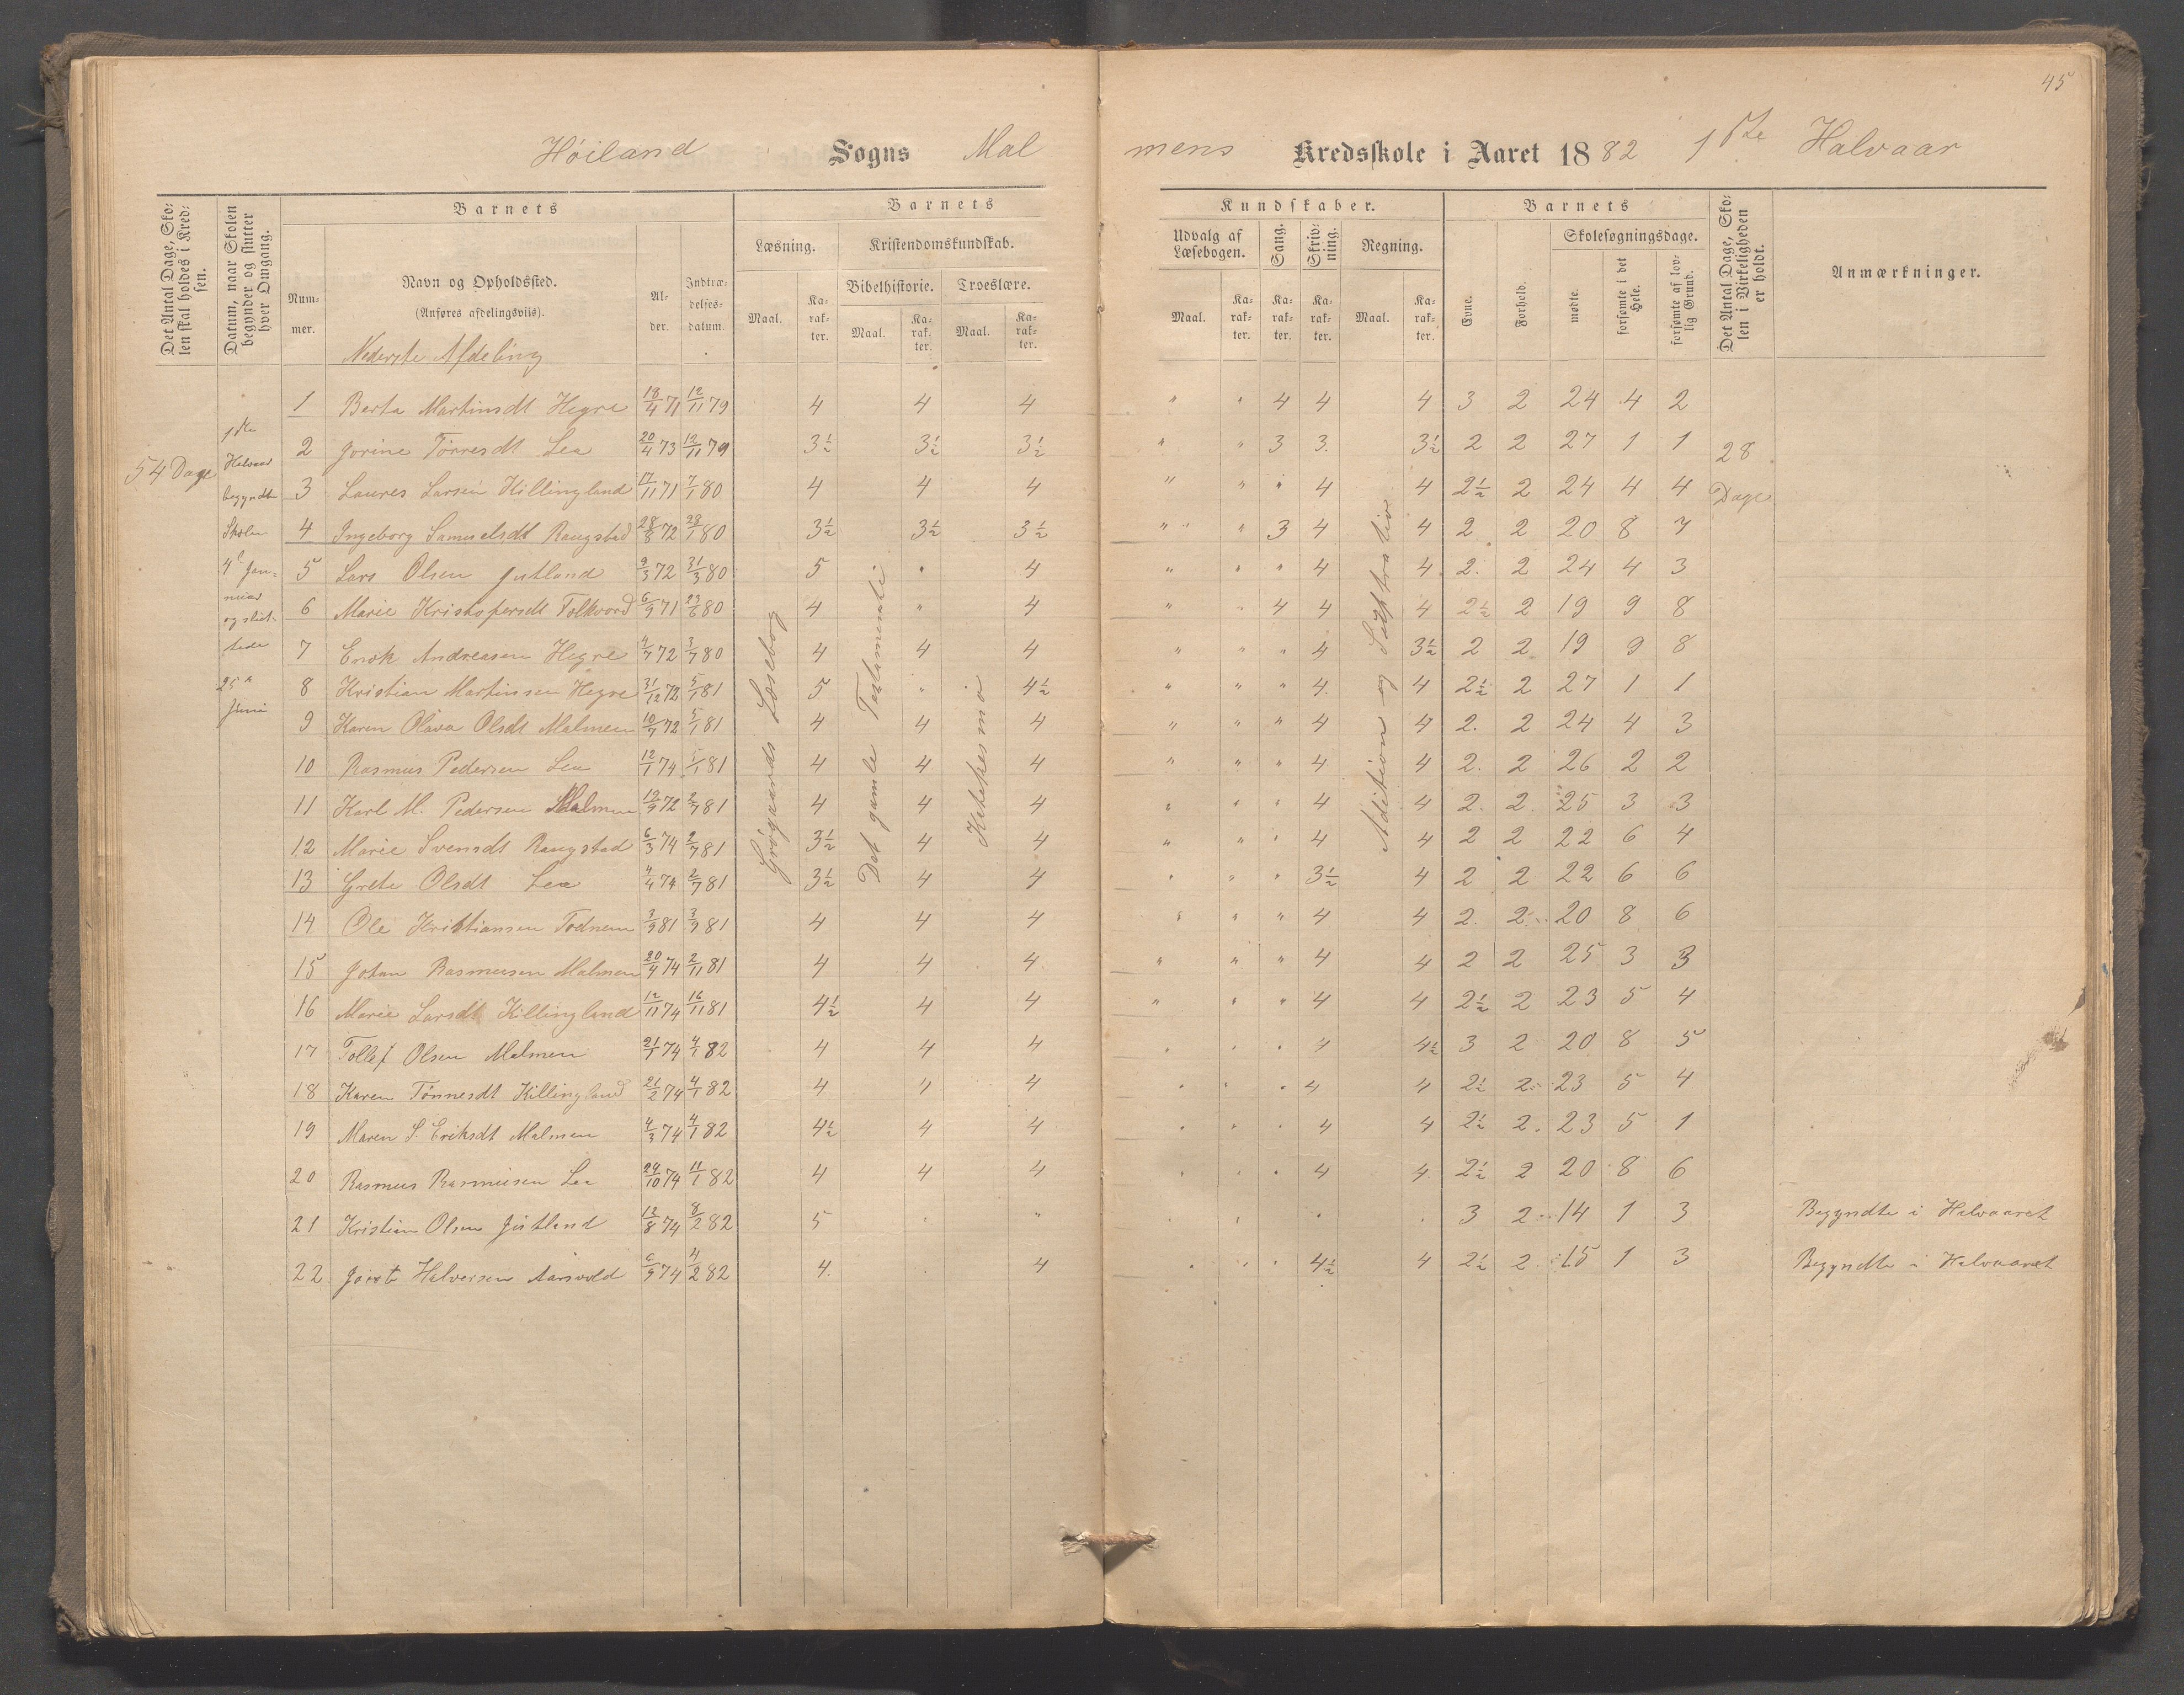 45
Høiland Sogns Malmens Kredsskole i Aaret 1882 1ste Halvaar
Det Antal Dage, Skolen skal holdes i Kredsen.
Datum, naar Skolen begynder og slutter hver Omgang.
Barnets
Nummer.
Navn og Opholdssted.
(Anføres afdelingsviis).
Alder.
Indtrædelsesdatum.
Barnets Kundskaber.
Læsning.
Maal. Karakter.
Kristendomskundskab.
Bibelhistorie. Troeslære.
Maal. Karakter. Maal. Karakter.
Udvalg af Læsebogen.
Maal. Karakter.
Sang. Karakter.
Skrivning. Karakter.
Regning.
Maal. Karakter.
Barnets
Evne. Forhold.
Skolesøgningsdage.
mødte. forsømte i det Hele. forsømte af lovlig Grund.
Det Antal Dage, Skolen i Virkeligheden er holdt.
Anmærkninger.
Nederste Afdeling
54 Dage
1ste Halvaar begyndte Skolen 4de Januar og sluttede 25de Juni
28 Dage
Grøgaards Læsebog
Det gamle Testamente
Katekesmo
Adition og Subtration
1 Berta Martinsdt Hegre 18/4 71 12/11 79 4 4 4 " " 4 4 4 3 2 24 4 2
2 Jorine Tørresdt Lea 20/4 73 12/11 79 3½ 3½ 3½ " " 3 3 3½ 2 2 27 1 1
3 Laures Larsen Killingland 17/11 71 7/1 80 4 4 4 " " " 4 4 2½ 2 24 4 4
4 Ingeborg Samuelsdt Raugstad 28/8 72 28/1 80 3½ 3½ 3½ " " 3 4 4 2 2 20 8 7
5 Lars Olsen Jutland 9/3 72 31/3 80 5 " 4 " " " 4 4 2 2 24 4 3
6 Marie Kristofersdt Folkvord 6/9 71 23/6 80 4 " 4 " " 4 4 4 2½ 2 19 9 8
7 Enok Andreasen Hegre 4/7 72 3/7 80 4 4 4 " " " 4 3½ 2 2 19 9 8
8 Kristian Martinsen Hegre 31/12 72 5/1 81 5 " 4½ " " " 4 4 2½ 2 27 1 1
9 Karen Olava Olsdt Malmen 10/7 72 5/1 81 4 4 4 " " " 4 4 2 2 24 4 3
10 Rasmus Pedersen Lea 12/1 74 5/1 81 4 4 4 " " " 4 4 2 2 26 2 2
11 Karl M. Pedersen Malmen 19/9 72 2/7 81 4 4 4 " " " 4 4 2 2 25 3 3
12 Marie Svensdt Raugstad 6/3 74 2/7 81 3½ 4 4 " " " 4 4 2 2 22 6 4
13 Grete Olsdt Lea 4/4 74 2/7 81 3½ 4 4 " " " 3½ 4 2 2 22 6 6
14 Ole Kristiansen Todnem 3/9 81 3/9 81 4 4 4 " " " 4 4 2 2 20 8 6
15 Johan Rasmusen Malmen 20/4 74 2/11 81 4 4 4 " " " 4 4 2 2 25 3 3
16 Marie Larsdt Killingland 12/11 74 16/11 81 4½ 4 4 " " " 4 4 2½ 2 23 5 4
17 Tollef Olsen Malmen 21/1 74 4/1 82 4 4 4 " " " 4 4½ 3 2 20 8 5
18 Karen Tønnesdt Killingland 21/2 74 4/1 82 4 4 4 " " " 4 4 2½ 2 23 5 4
19 Maren S. Eriksdt Malmen 4/3 74 4/1 82 4½ 4 4 " " " 4 4 2½ 2 23 5 1
20 Rasmus Rasmusen Lea 24/10 74 11/1 82 4 4 4 " " " 4 4 2½ 2 20 8 6
21 Kristian Olsen Jutland 13/8 74 8/2 82 5 " " " " " 3 2 14 1 3 Begyndte i Halvaaret
22 Halversen Aarsvold 6/9 74 4/2 82 4 4 " " " 4½ 4 2½ 2 15 1 3 Begyndte i Halvaaret